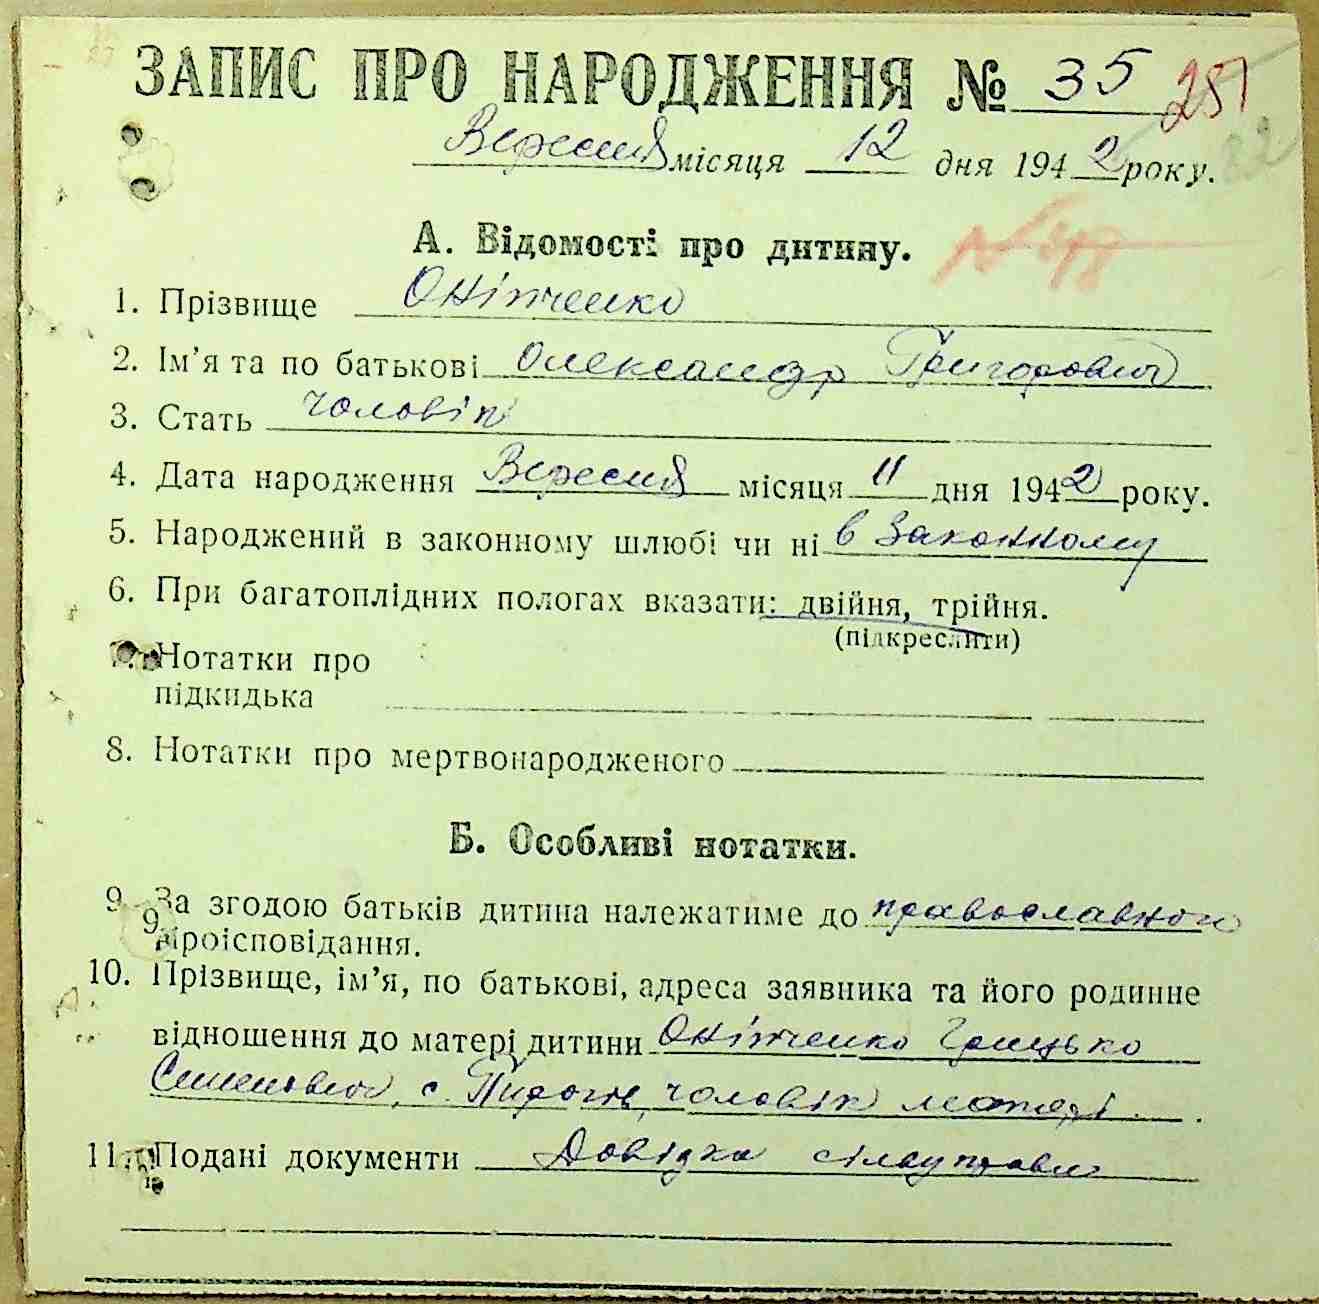 ЗАПИС ПРО НАРОДЖЕННЯ № 35 251
Вересня місяця 12 дня 1942 року. 82
А. Відомості про дитину.
№ 48
1. Прізвище Оніпченко
2. Ім'я та по батькові Олександр Григорович
3. Стать чоловік
4. Дата народження Вересня місяця 11 дня 1942 року.
5. Народжений в законному шлюбі чи ні в законному
6. При багатоплідних пологах вказати: двійня, трійня.
(підкреслити)
7. Нотатки про
підкидька
8. Нотатки про мертвонародженого
Б. Особливі нотатки.
9. За згодою батьків дитина належатиме до православної
9
віроісповідання.
10. Прізвище, ім'я, по батькові, адреса заявника та його родинне
відношення до матері дитини Оніпченко Грицько
Семенович, с. Пирогів, чоловік матері.
11. Подані документи Довідка сільуправи